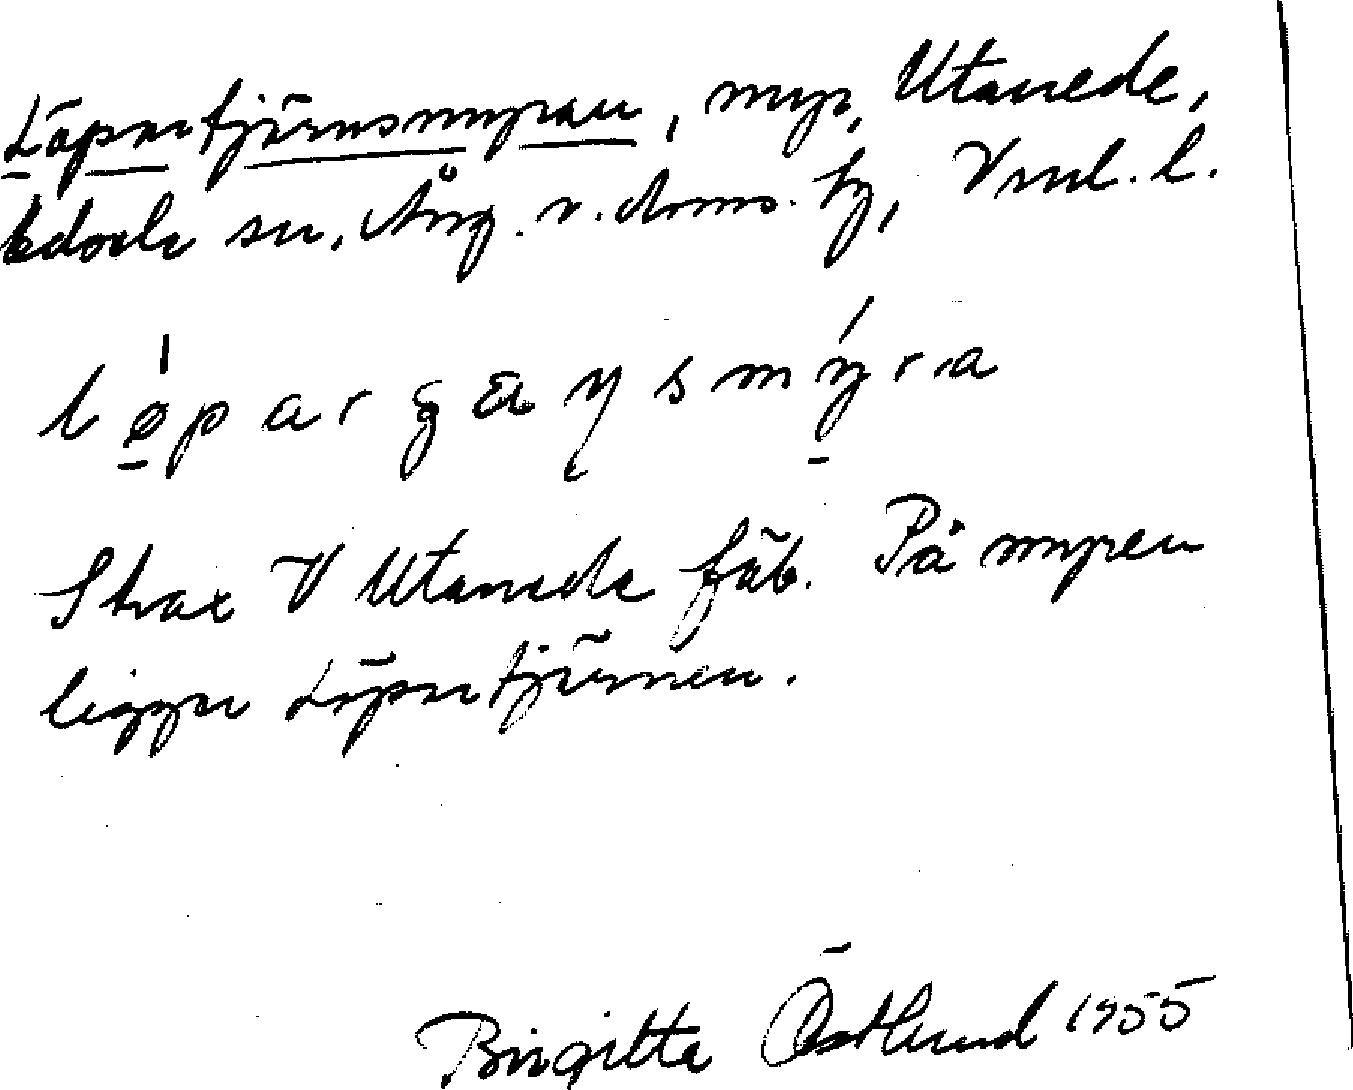 Löpartjärnsmyran, myr, Utanede,
Edsele sn, Ång. v. doms. tg, Vnl. l.
Strax V Utanede fäb. På myren
ligger Löpartjärnen.
Birgitta Östlund 1955